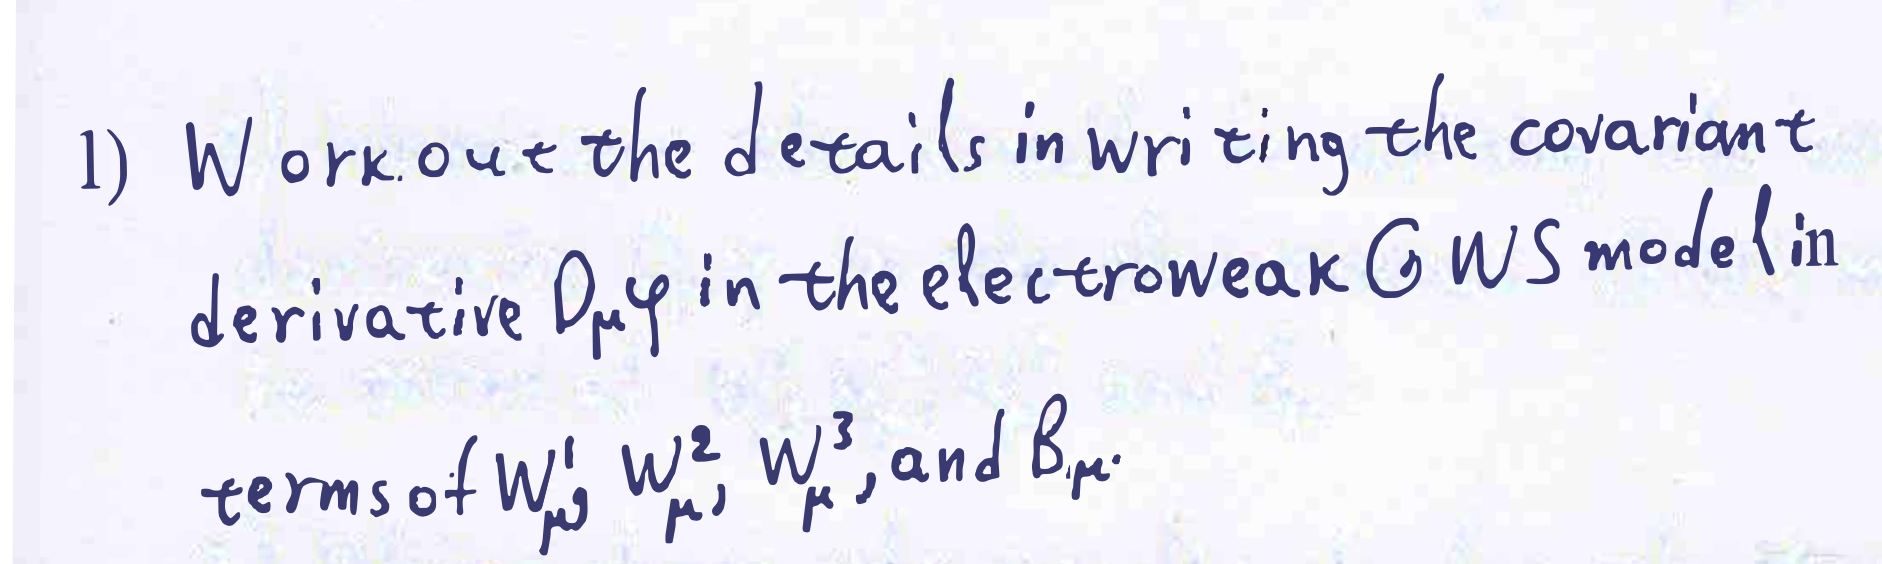 1) Work out the details in writing the covariant
derivative Dμφ in the electroweak GWS model in
terms of W¹μ, W²μ, W³μ, and Bμ.